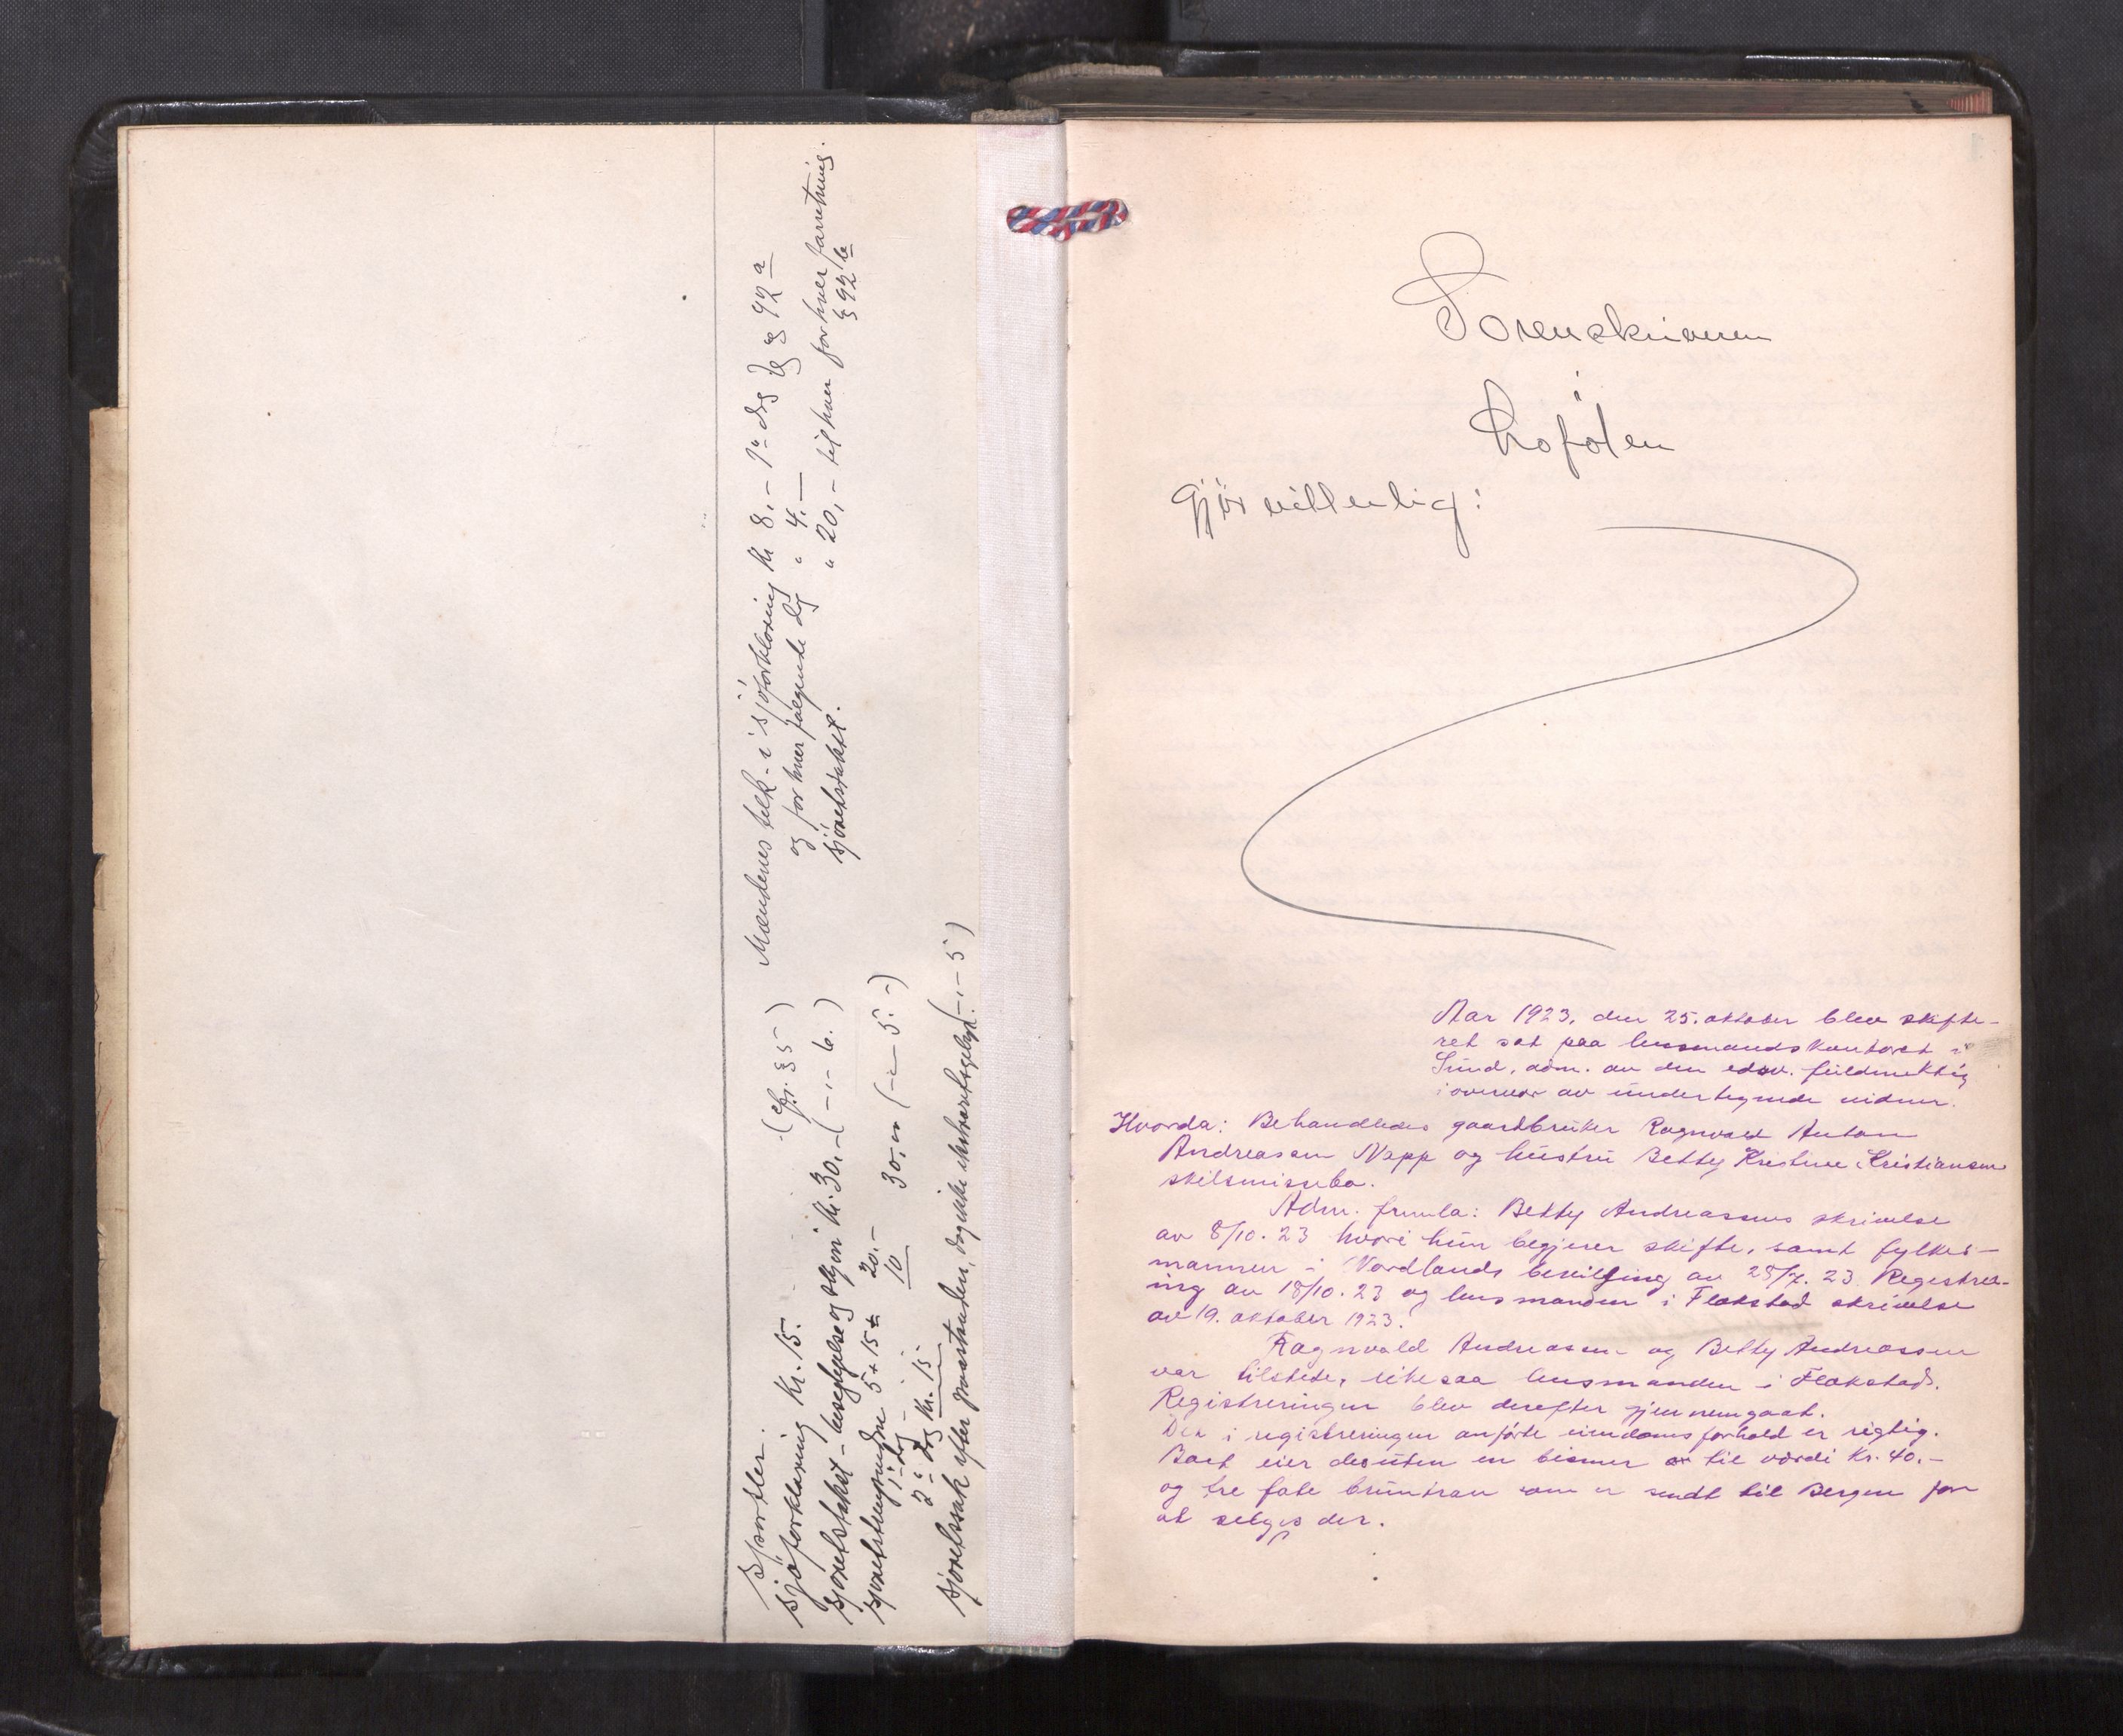 Sportler.
Sjøforklaring Kr. 15.- (cfr. § 35)
sjøretstakst - besigtigelse og skjøn kr. 30.- ( -"- 6.)
5 + 15 + 20.- 30,00 ( -"- 5.-)
1ste dag 10
2den dag Kr. 15
sjøretssak efter
Mændenes tilk. i sjøforklaring kr 8.- 1ste dag
og for hver følgende dag " 4.- § 92 a
sjøretstakst. " 20,- til hver for hver forretning.
§ 92 b
Sorenskriveren
i
Lofoten
Gjør vitterlig:
Aar 1923, den 25. oktober blev skifte-
ret sat paa lensmandskontoret i
Sund, adm. av den edsv. fuldmektig
i overvær av undertegnede vidner.
Hvorda: Behandledes gaardbruker Ragnvald Anton
Andreassen Napp og hustru Betty Kristine Kristiansens
skilsmissebo.
Adm. fremla: Betty Andreassens skrivelse
av 8/10. 23 hvori hun begjærer skifte, samt fylkes-
mannen i Nordlands bevilging av 28/7. 23. Registrer-
ing av 18/10. 23 og lensmanden i Flakstad skrivelse
av 19. oktober 1923.
Ragnvald Andreassen og Betty Andreassen
var tilstede, likesaa lensmanden i Flakstad.
Registreringen blev derefter gjennemgaat.
Den i registreringen anførte eiendomsforhold er rigtig.
Boet eier desuten en bismer til værdi Kr. 40.-
og tre fate bruntran som er sendt til Bergen for
at selges der.